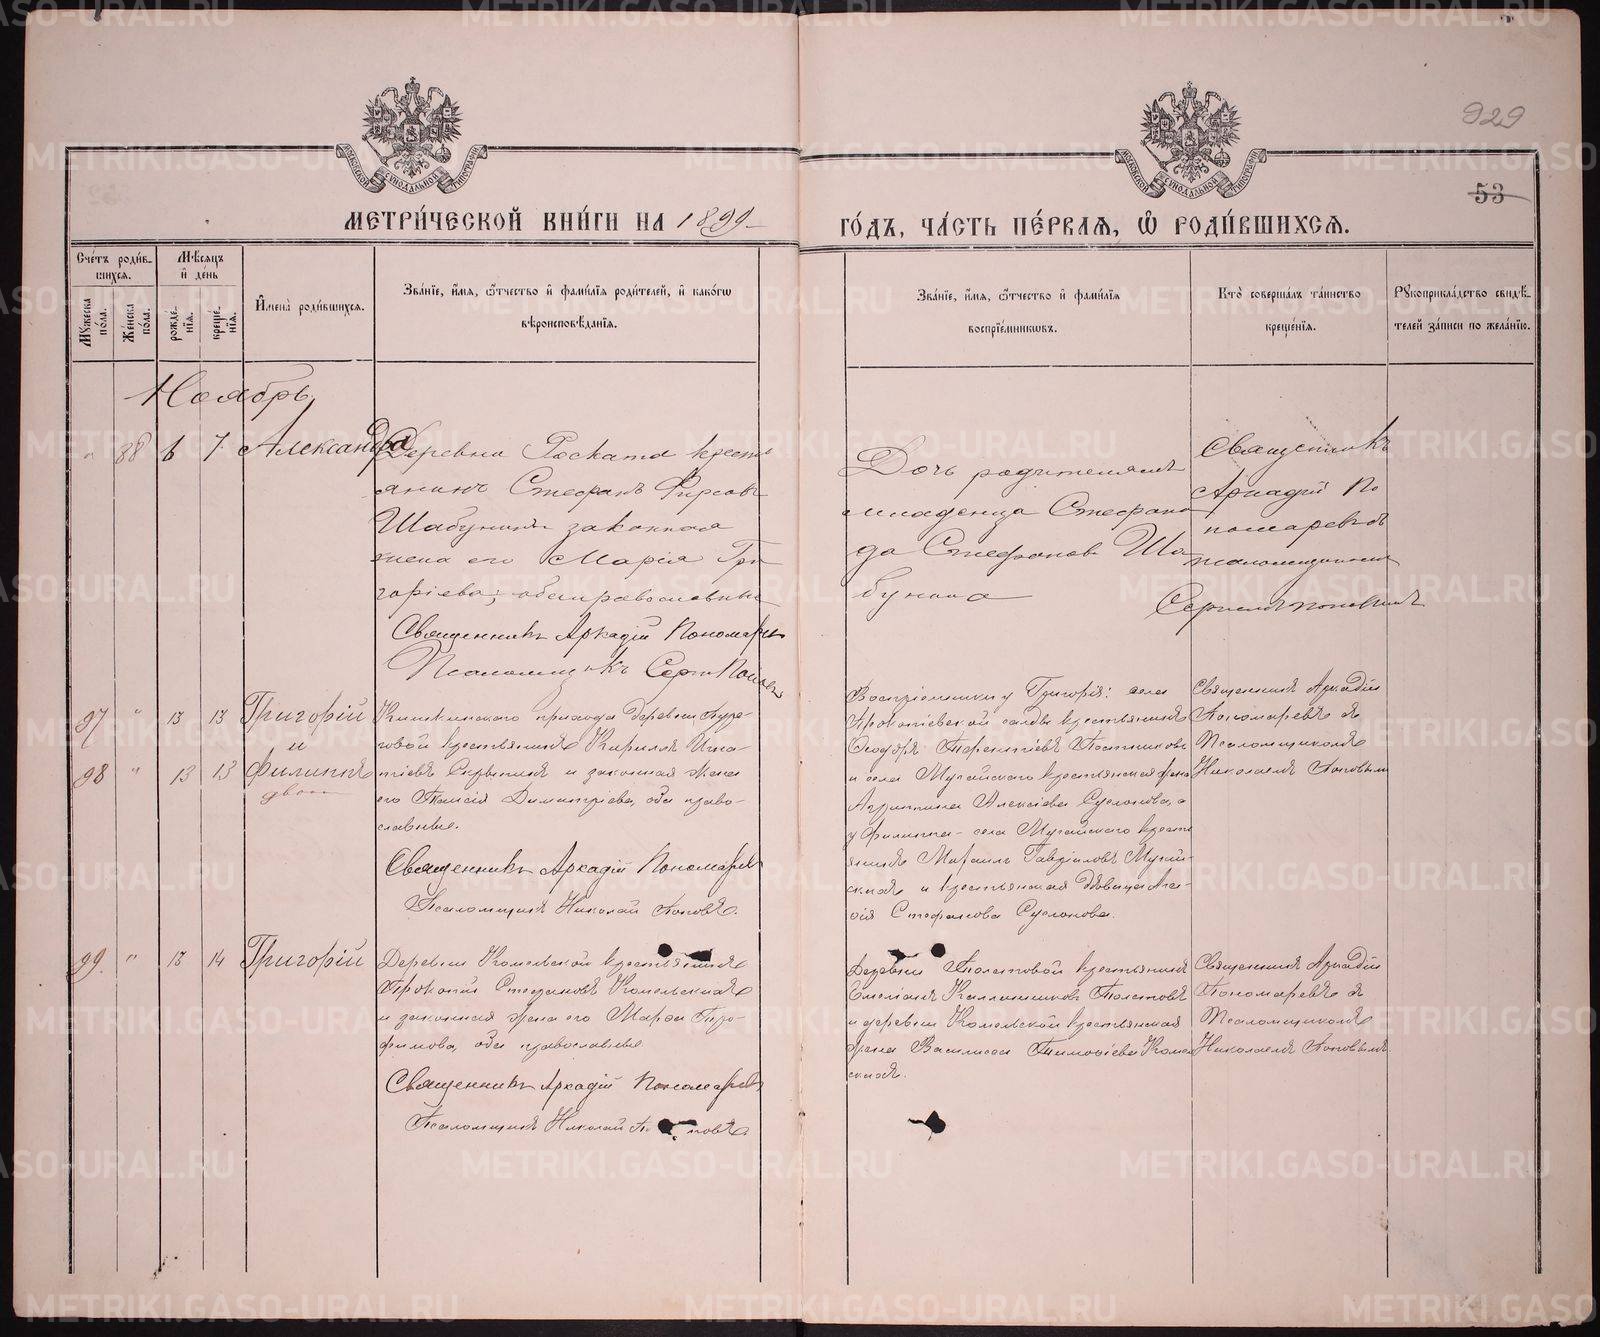 929
53
МОСКОВСКОЙ СѴНОДАЛЬНОЙ ТИПОГРАФІИ
МОСКОВСКОЙ СѴНОДАЛЬНОЙ ТИПОГРАФІИ
МЕТРИ́ЧЕСКОЙ КНИ́ГИ НА 1899
ГО́ДЪ, ЧА́СТЬ ПЕ́РВАѦ, Ѡ҆ РОДИ́ВШИХСѦ.
Сче́тъ роди́в-
шихся.
Мꙋ́жеска
по́ла.
Же́нска
по́ла.
Мѣ́сяцъ
и҆ де́нь
рожде́-
нїѧ.
креще́-
нїѧ.
И҆мена̀ роди́вшихся.
Зва́нїе, и҆́мя, ѻ҆́тчество и҆ фамилїя роди́телей, и҆ како́гѡ
вѣроисповѣ́данїя.
Зва́нїе, и҆́мя, ѻ҆́тчество и҆ фами́лїя
воспрїе́мниковъ.
Кто̀ соверша́лъ та́инство
креще́нїя.
Рꙋкоприкла́дство свидѣ́-
телей за́писи по жела́нїю.
Ноябрь
88 6 7 Александра
Деревни Раската кресть
янинъ Стефанъ Фирсовъ
Шабунинъ законная
жена его Марія Гри
горіева; оба православные
Священникъ Аркадій Пономаревъ
Псаломщикъ
Дочь родителямъ
младенца Стефана
Стефановъ Ша
бунина
Священникъ
Аркадій По
номаревъ
97 " 13 13 Григорій
и
98 " 13 13 Филиппъ
двой
прихода деревни
говой крестьянинъ Кириллъ Игна
тіевъ и законная жена
его Таисія Димитріева, оба право-
славные.
Священникъ Аркадій Пономаревъ
Псаломщикъ Николай Поповъ.
Воспріемники у Григорія: села
крестьянинъ
Ѳеодоръ Терентіевъ
и села Мугайского крестьянская жена
Агрипина Алексіева Суслонова, а
у Филиппа - села Мугайского кресть
янинъ Гавріиловъ Мугай-
скихъ и крестьянская вдовица
Стефанова Суслонова.
Священникъ Аркадій
Пономаревъ съ
Псаломщикомъ
Николаемъ Поповымъ
99. " 13 14 Григорій
Деревни Комельской крестьянинъ
Прокопій Стефановъ Комельскихъ
и законная жена его Марѳа Тро-
фимова, оба православные
Священникъ Аркадій Пономаревъ
Псаломщикъ Николай Поповъ.
Деревни Толстовой крестьянинъ
Емеліанъ Каллинниковъ Толстовъ
и деревни Комельской крестьянская
жена Василиса Тимоѳіева Комель
скихъ.
Священникъ Аркадій
Пономаревъ съ
Псаломщикомъ
Николаемъ Поповымъ
METRIKI.GASO-URAL.RU